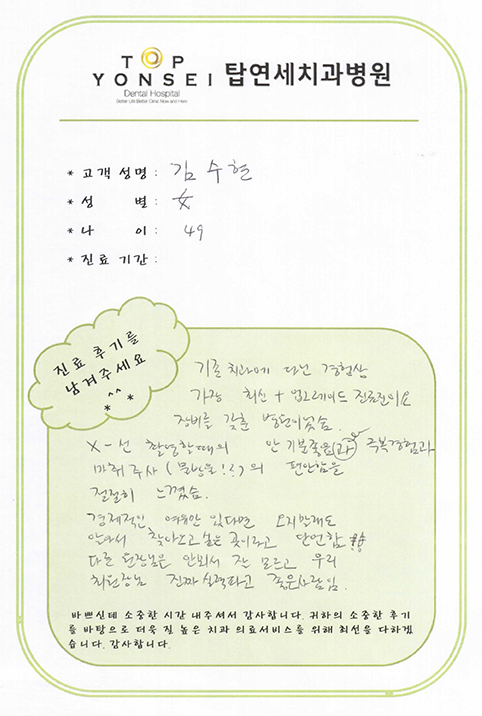 TOP
YONSEI 탑연세치과병원
Dental Hospital
Better Life Better Clinic Now and Here
* 고객성명 : 김수현
* 성 별 : 女
* 나 이 : 49
* 진료 기간 :
진료 후기를
남겨주세요
^^
* *
기존 치과에 다닌 경험상
가장 최신 + 업그레이드 진료진이요
장비를 갖춘 병원이었슴.
X-선 촬영할때의 안 기분좋음(과)
마취주사 ( !?)의 편안함을
절절히 느꼈슴.
경제적인 있다면 오지말래도
찾아오고 싶은 곳이라고 단언함!!
다른 원장님은 안봬서 잘 모르고 우리
최원장님 진짜 실력파고 좋은사람임.
바쁘신데 소중한 시간 내주셔서 감사합니다. 귀하의 소중한 후기
를 바탕으로 더욱 질 높은 치과 의료서비스를 위해 최선을 다하겠
습니다. 감사합니다.